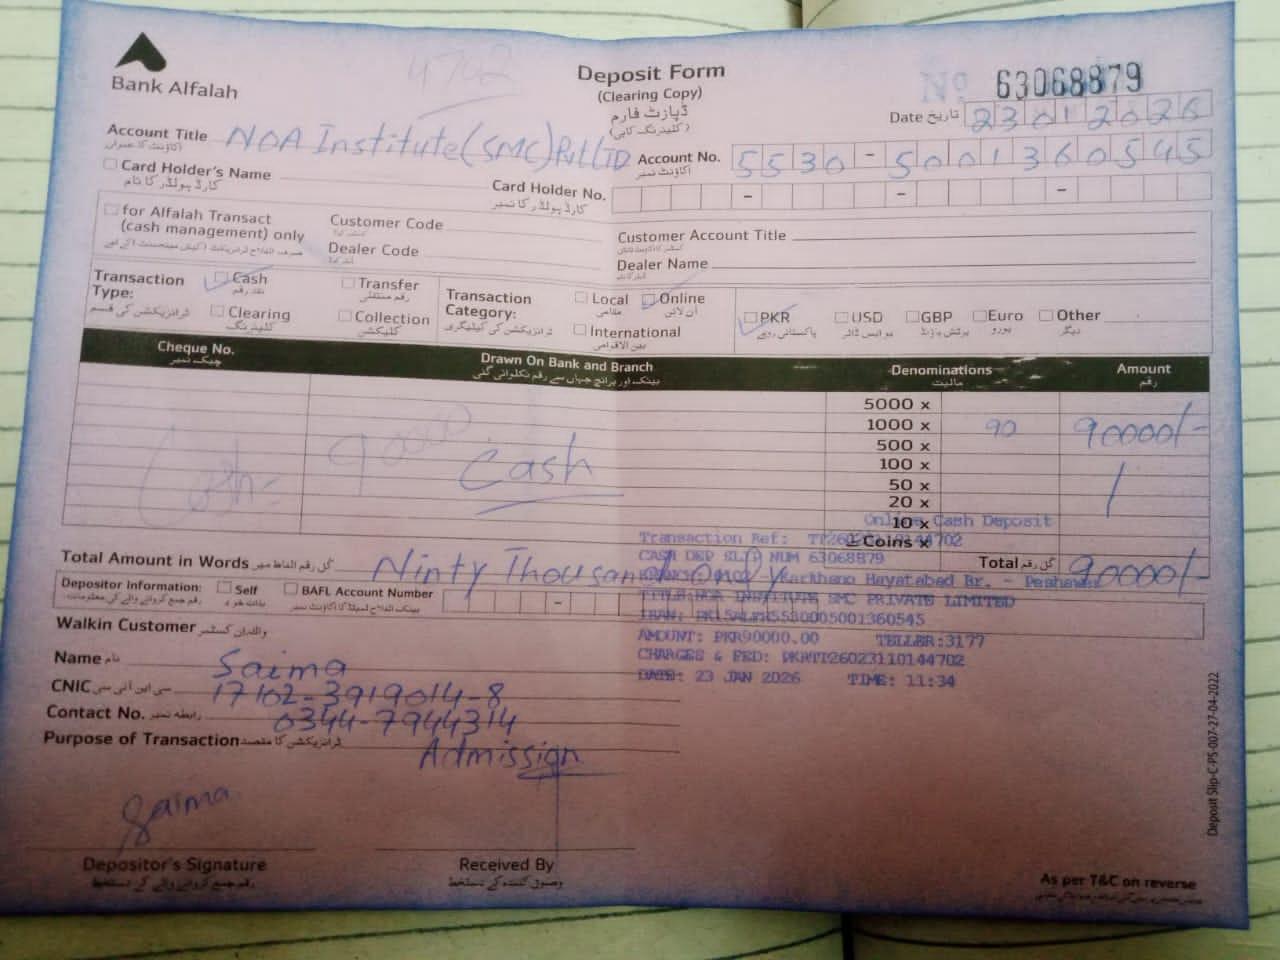 Bank Alfalah
4702
Deposit Form
(Clearing Copy)
ڈپازٹ فارم
(کلیئرنگ کاپی)
No 63068879
Date تاریخ 23012026
Account Title NOA Institute(SMC)Pvt LTD
اکاؤنٹ کا عنوان
Account No. 5530-5001360545
اکاؤنٹ نمبر
Card Holder's Name
کارڈ ہولڈر کا نام
Card Holder No.
کارڈ ہولڈر کا نمبر
for Alfalah Transact
(cash management) only
Customer Code
Dealer Code
Customer Account Title
Dealer Name
Transaction Type:
ٹرانزیکشن کی قسم
Cash
نقد رقم
Transfer
رقم منتقلی
Clearing
کلیئرنگ
Collection
کلیکشن
Transaction Category:
ٹرانزیکشن کی کیٹیگری
Local
مقامی
Online
آن لائن
International
بین الاقوامی
PKR
پاکستانی روپے
USD
یو ایس ڈالر
GBP
برٹش پاؤنڈ
Euro
یورو
Other
دیگر
Cheque No.
چیک نمبر
Drawn On Bank and Branch
بینک اور برانچ جہاں سے رقم نکلوائی گئی
Denominations
مالیت
Amount
رقم
5000 x
1000 x 90 90000/-
500 x
100 x
50 x
20 x
10 x
Coins x
Cash 90000
Cash
Online Cash Deposit
Total Amount in Words کل رقم الفاظ میں Ninty Thousand only
Total کل رقم 90000/-
CASH DEP SLIP NUM 63068879
Karkhano Hayatabad Br. - Peshawar
TITLE:NOA INSTITUTE SMC PRIVATE LIMITED
AMOUNT: PKR90000.00 TELLER:3177
CHARGES & FED: PKRTT26023110144702
DATE: 23 JAN 2026 TIME: 11:34
Depositor Information:
Self
BAFL Account Number
Walkin Customer واک ان کسٹمر
Name نام Saima
CNIC سی این آئی سی 17102-3919014-8
Contact No. رابطہ نمبر 0344-7944314
Purpose of Transaction ٹرانزیکشن کا مقصد Admission
Saima
Depositor's Signature
رقم جمع کروانے والے کے دستخط
Received By
وصول کنندہ کے دستخط
As per T&C on reverse
Deposit Slip-C-PS-007-27-04-2022